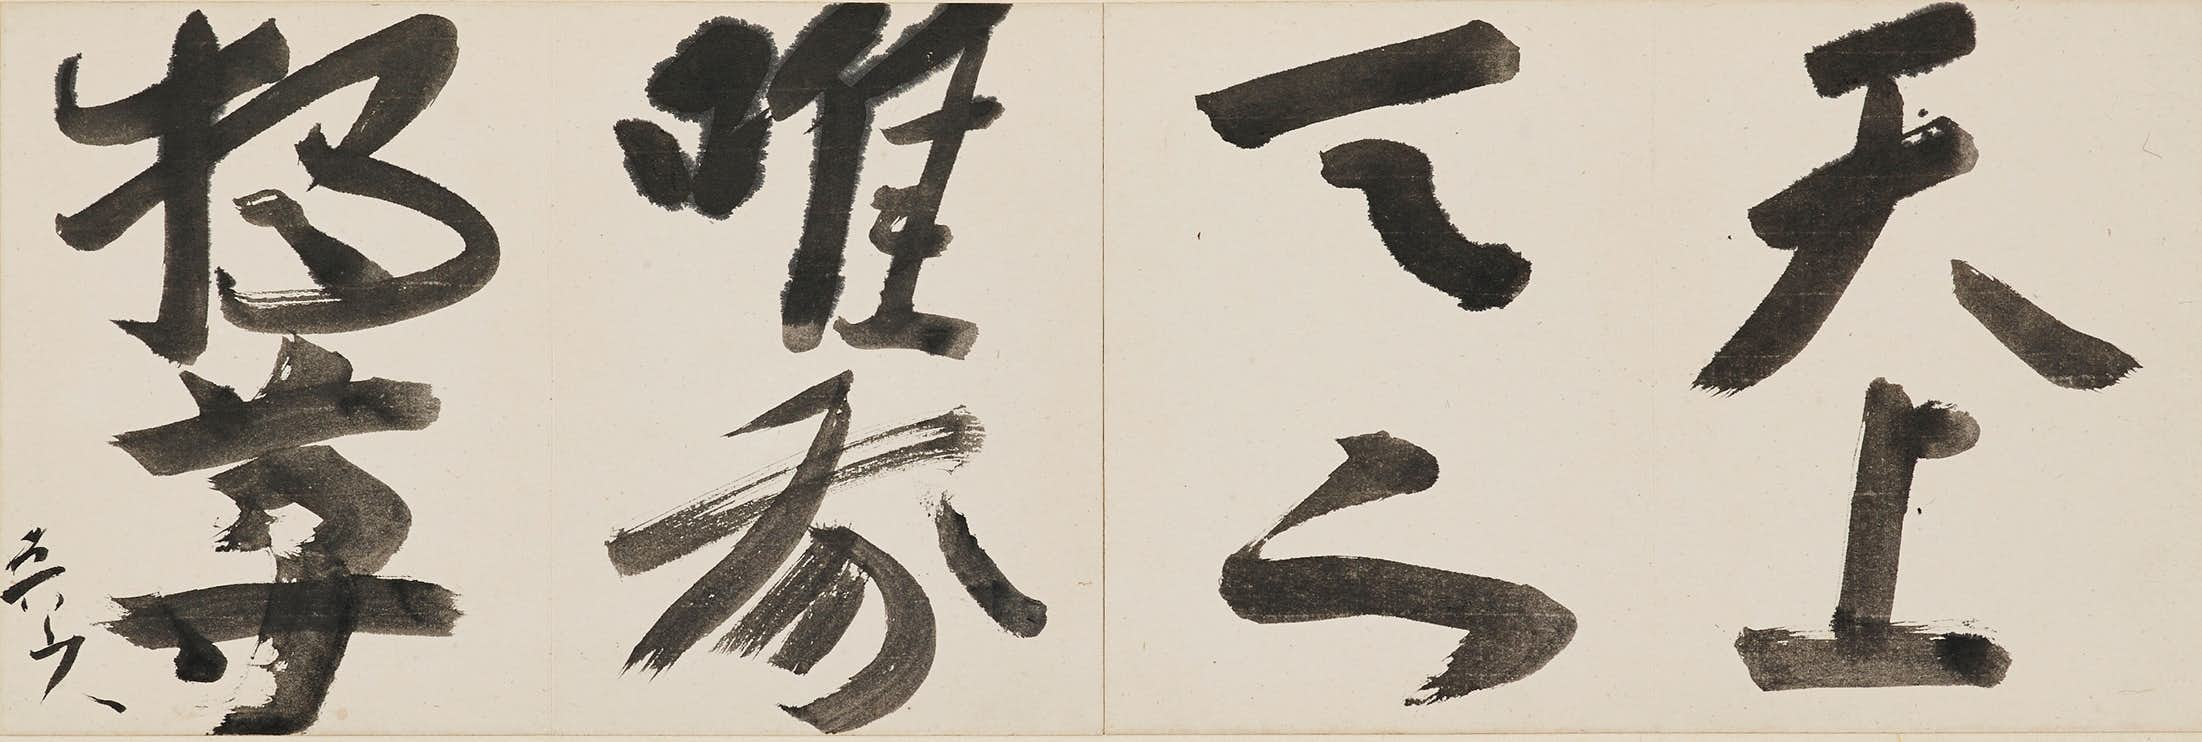 天上
天下
唯我
獨尊